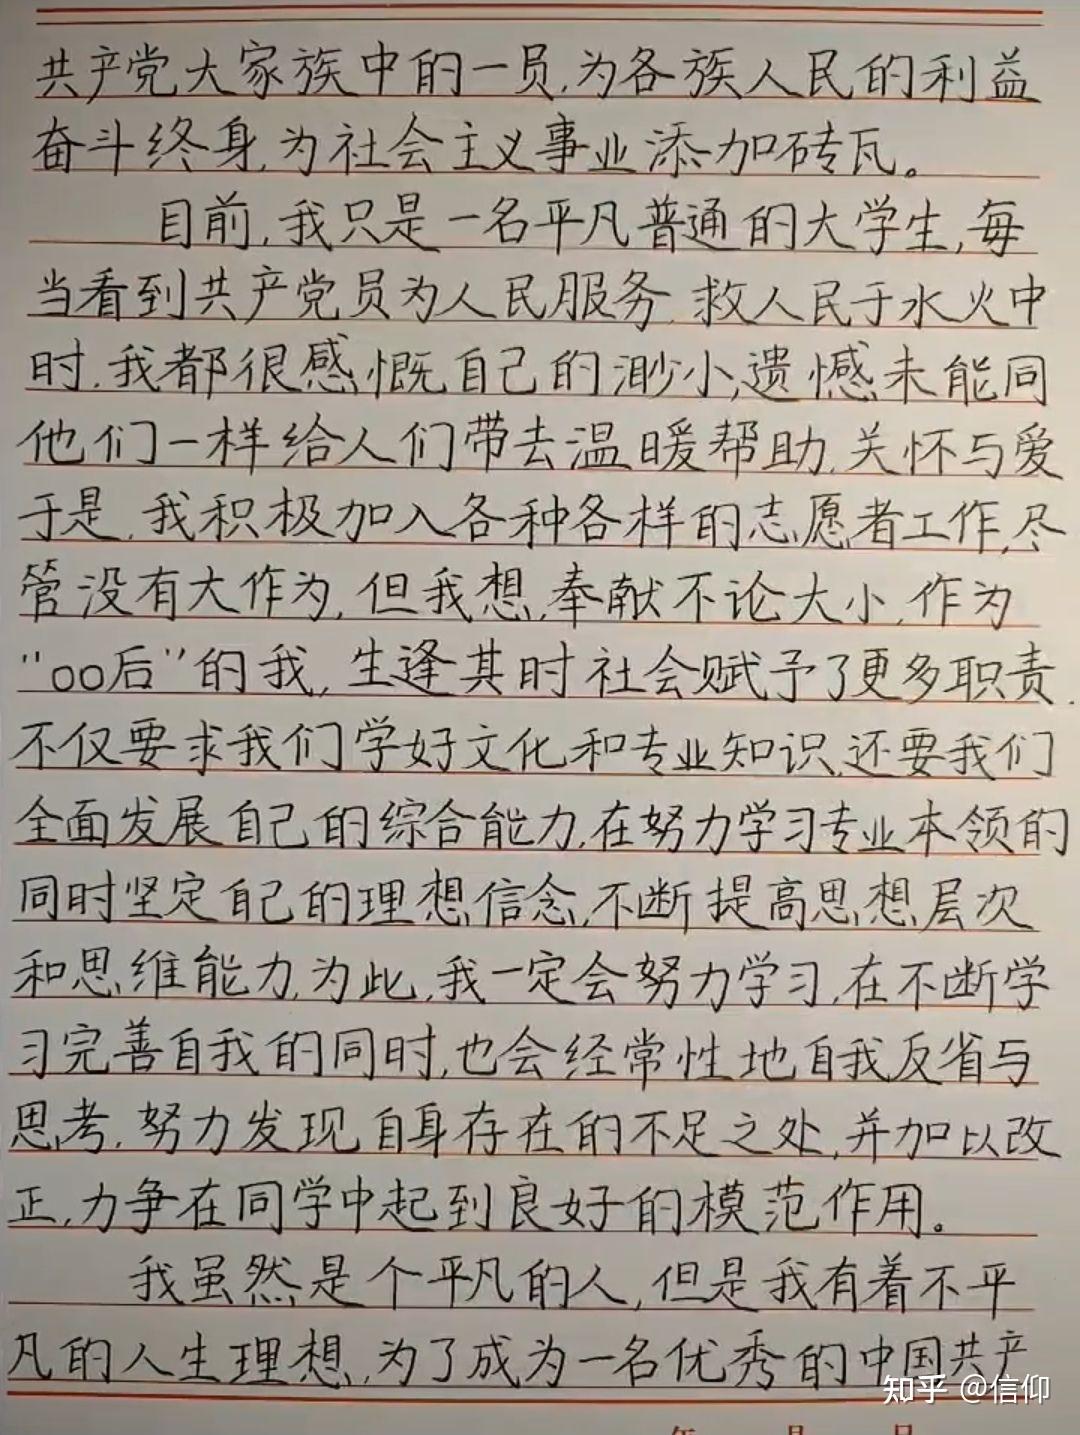 共产党大家族中的一员,为各族人民的利益
奋斗终身,为社会主义事业添加砖瓦。
目前,我只是一名平凡普通的大学生,每
当看到共产党员为人民服务,救人民于水火中
时,我都很感慨自己的渺小,遗憾未能同
他们一样给人们带去温暖帮助,关怀与爱
于是,我积极加入各种各样的志愿者工作,尽
管没有大作为,但我想,奉献不论大小,作为
"00后"的我,生逢其时社会赋予了更多职责,
不仅要求我们学好文化和专业知识,还要我们
全面发展自己的综合能力,在努力学习专业本领的
同时坚定自己的理想信念,不断提高思想层次
和思维能力,为此,我一定会努力学习,在不断学
习完善自我的同时,也会经常性地自我反省与
思考,努力发现自身存在的不足之处,并加以改
正,力争在同学中起到良好的模范作用。
我虽然是个平凡的人,但是我有着不平
凡的人生理想,为了成为一名优秀的中国共产
知乎 @信仰
年 月 日